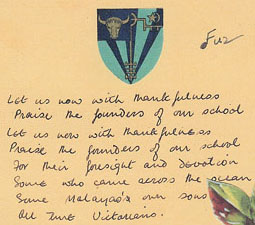 Let us now with thankfulness
Praise the founders of our school
Let us now with thankfulness
Praise the founders of our school
For their foresight and devotion
Some who came across the ocean
Some Malaya's own sons
All true Victorians.